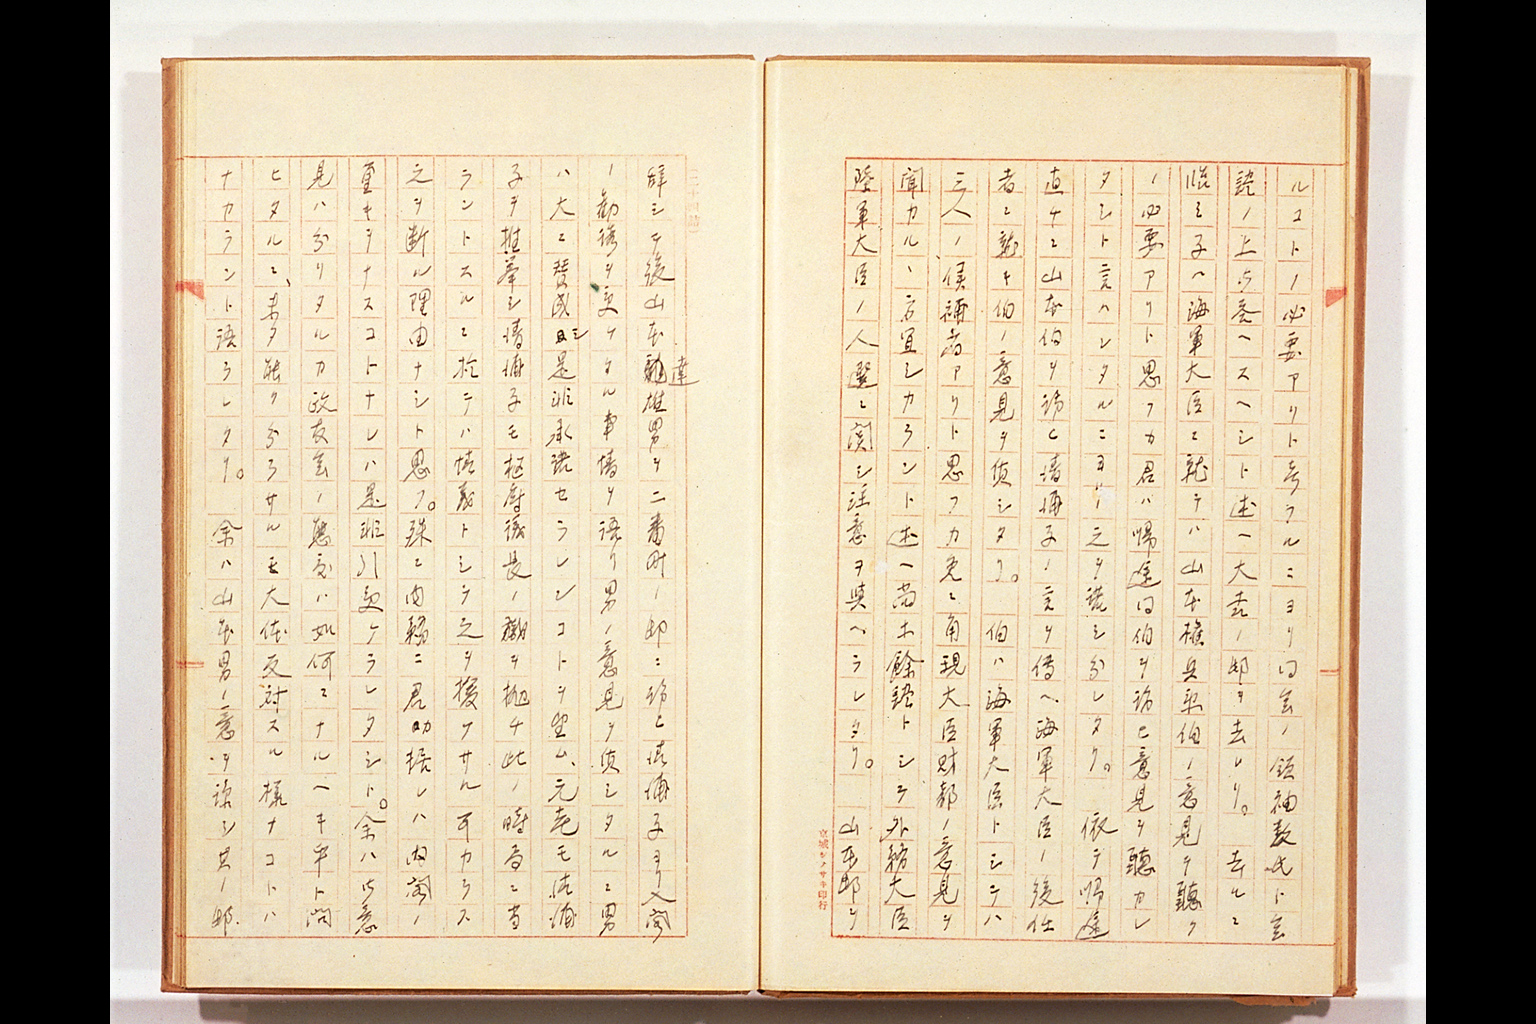 ルコトノ必要アリト考フルニヨリ同会ノ領袖数氏ト会
談ノ上ニ答ヘスヘシト述ヘ大木ノ邸ヲ去レリ。去ルニ
臨ミ子ハ海軍大臣ニ就テハ山本権兵衛伯ノ意見ヲ聴ク
ノ必要アリト思フカ君ハ帰途同伯ヲ訪ヒ意見ヲ聴カレ
タシト言ハレタルニヨリ之ヲ諾シ分レタリ。依テ帰途
直チニ山本伯ヲ訪ヒ清浦子ノ言ヲ傳ヘ海軍大臣ノ後任
者ニ就キ伯ノ意見ヲ質シタリ。伯ハ海軍大臣トシテハ
三人ノ候補者アリト思フカ先ニ角現大臣財部ノ意見ヲ
聞カルヽ方宜シカラント述ヘ尚ホ餘談トシテ外務大臣
陸軍大臣ノ人選ニ関シ注意ヲ與ヘラレタリ。山本邸ヲ
京城ヲノサキ印行
辞シテ後山本達雄男ヲ二番町ノ邸ニ訪ヒ清浦子ヨリ入閣
ノ勧誘ヲ受ケタル事情ヲ語リ男ノ意見ヲ質シタルニ男
ハ大ニ賛成シ是非承諾セラレンコトヲ望ム、元老モ清浦
子ヲ推挙シ清浦子モ枢府議長ノ職ヲ抛チ此ノ時局ニ当
ラントスルニ於テハ情義トシテ之ヲ援ケサル可カラス
之ヲ断ル理由ナシト思フ。殊ニ内務ニ君カ据レハ内閣ノ
重キヲナスコトナレハ是非引受ケラレタシト。余ハ此意
見ハ分リタルカ政友会ノ態度ハ如何ニナルヘキヤト問
ヒタルニ、未タ能ク分ラサルモ大体反対スル様ナコトハ
ナカラント語ラレタリ。余ハ山本男ノ意ヲ諒シ其ノ邸